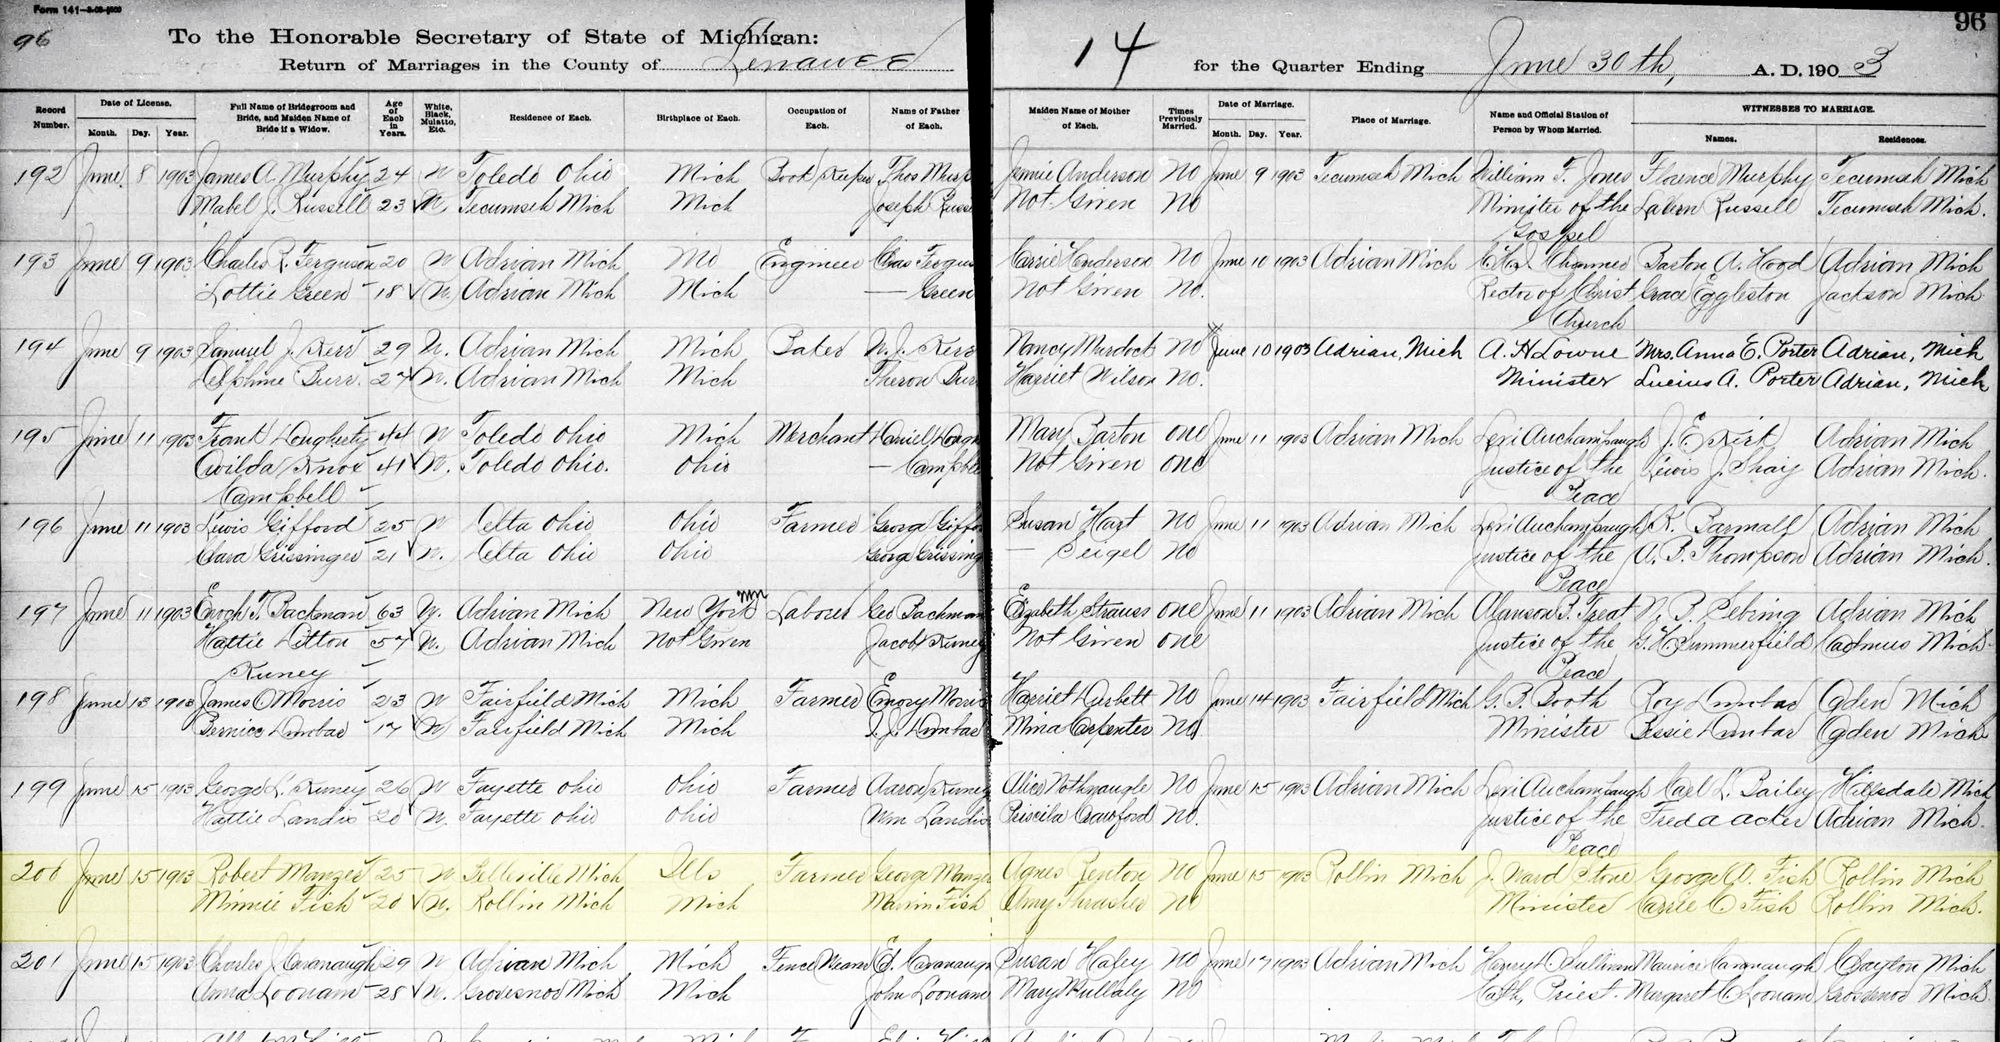 Form 141
96
96
To the Honorable Secretary of State of Michigan:
Return of Marriages in the County of Lenawee
14 for the Quarter Ending June 30th, A. D. 1903
Record Number.
Date of License.
Month. Day. Year.
Full Name of Bridegroom and Bride, and Maiden Name of Bride if a Widow.
Age of Each in Years.
White, Black, Mulatto, Etc.
Residence of Each.
Birthplace of Each.
Occupation of Each.
Name of Father of Each.
Maiden Name of Mother of Each.
Times Previously Married.
Date of Marriage.
Month. Day. Year.
Place of Marriage.
Name and Official Station of Person by Whom Married.
WITNESSES TO MARRIAGE.
Names. Residences.
192 June 8 1903 James A. Murphy 24 W Toledo Ohio Mich Book Keeper Thos Murp Jennie Anderson No June 9 1903 Tecumseh Mich William F. Jones Florence Murphy Tecumseh Mich
Mabel J. Russell 23 W. Tecumseh Mich Mich Joseph Russe Not Given No Minister of the Russell Tecumseh Mich.
Gospel
193 June 9 1903 Charles R. Ferguson 20 W Adrian Mich Mo Engineer Chas Fergus Carrie Henderson No June 10 1903 Adrian Mich Barton A. Hood Adrian Mich
Lottie Green 18 W. Adrian Mich Mich — Green Not Given No. Rector of Christ Grace Eggleston Jackson Mich
Church
194 June 9 1903 Samuel J. Kerr 29 W. Adrian Mich Mich W. J. Kerr Nancy Murdock No June 10 1903 Adrian, Mich A. H. Lowne Mrs. Anna E. Porter Adrian, Mich
Delphine Burr. 27 W. Adrian Mich Mich Theron Bur Harriet Wilson No. Minister Lucius A. Porter Adrian, Mich
195 June 11 1903 Frank Dougherty 44 W Toledo Ohio Mich Merchant Daniel Dough Mary Barton one June 11 1903 Adrian Mich Levi Auchampaugh J. E. Kirk Adrian Mich
Knox 41 W. Toledo Ohio. Ohio — Campbe Not Given one Justice of the Lewis J. Shay Adrian Mich.
Campbell Peace
196 June 11 1903 Lewis Gifford 25 W Delta Ohio Ohio Farmer George Giffo Susan Hart No June 11 1903 Adrian Mich Levi Auchampaugh Adrian Mich
Clara Grissinger 21 W. Delta Ohio Ohio George Grissing — Seigel No Justice of the A. B. Thompson Adrian Mich.
Peace
197 June 11 1903 Enoch T. Backman 63 W. Adrian Mich New York Laborer Geo Backman Elizabeth Strauss one June 11 1903 Adrian Mich Alanson B. Treat Adrian Mich
Hattie Ditton 57 W. Adrian Mich Not Given Jacob Runey Not Given one Justice of the G. H. Summerfield Cadmus Mich
Runey Peace
198 June 13 1903 James O Morris 23 W Fairfield Mich Mich Farmer Emory Morris Harriet No June 14 1903 Fairfield Mich G. B. Booth Roy Dunbar Ogden Mich
Bernice Dunbar 17 W Fairfield Mich Mich Dunbar Mina Carpenter No Minister Bessie Dunbar Ogden Mich
199 June 15 1903 George L. Runey 26 W Fayette Ohio Ohio Farmer Aaron Runey Alice Nothnaugle No June 15 1903 Adrian Mich Levi Auchampaugh Carl L. Bailey Hillsdale Mich
Hattie Landis 20 W. Fayette Ohio Ohio Wm Landis Priscila Crawford No. Justice of the Fred a acker Adrian Mich.
Peace
200 June 15 1903 Robert Manzer 25 W Mich Ills Farmer George Manze Agnes Renton No June 15 1903 Rollin Mich J. Ward Stone George A. Fish Rollin Mich
Minnie Fish 20 W. Rollin Mich Mich Marvin Fish Amy Thrasher No Minister Carrie C. Fish Rollin Mich.
201 June 15 1903 Charles J. Cavanaugh 29 W Adrian Mich Mich Fence E. Cavanaugh Susan Haley No June 17 1903 Adrian Mich Henry D. Sullivan Maurice Cavanaugh Clayton Mich
Anna Loonam 28 W. Mich Mich John Loonam Mary Mullaly No Cath. Priest. Margaret C. Loonam Mich.